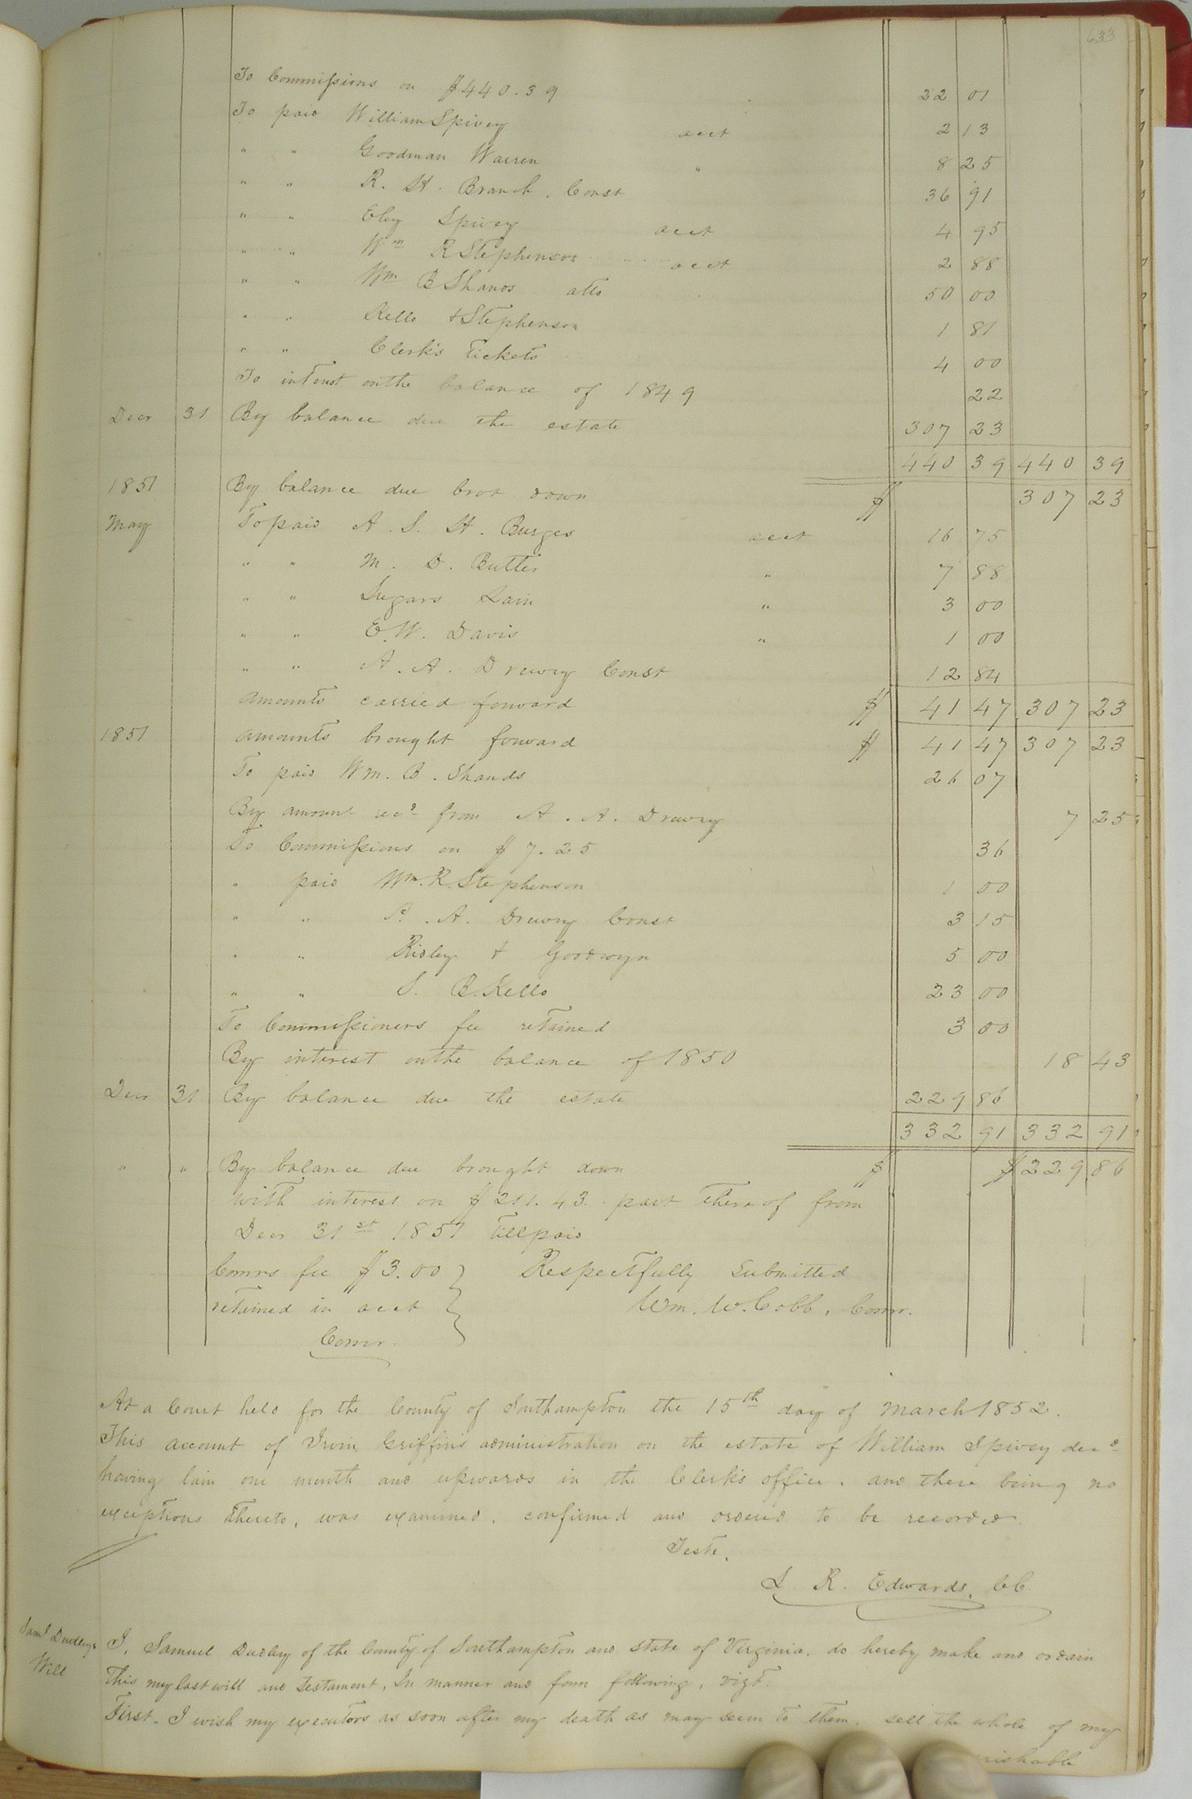 633
To Commissions on $440.39 22 01
To paid William Spivey acct 2 13
" " Goodman Warren " 8 25
" " R. H. Branch. Const 36 91
" " Eley Spivey acct 4 95
" " Wm R Stephenson acct 2 88
" " Wm B Shands atto 50 00
" " Kello & Stephenson 1 81
" " Clerk's Tickets 4 00
To interest on the balance of 1849 22
Decr 31 By balance due the estate 307 23
440 39 440 39
1851 By balance due brot down $ 307 23
May To paid A. S. H. Burges acct 16 75
" " M. D. Butts " 7 88
" " Sugars Lain " 3 00
" " E. W. Davis " 1 00
" " A. A. Drewry Const 12 84
Amounts carried forward $ 41 47 307 23
1851 Amounts brought forward $ 41 47 307 23
To paid Wm. B. Shands 26 07
By amount recd from A. A. Drewry 7 25
To Commissions on $7.25 36
" paid Wm. R. Stephenson 1 00
" " A. A. Drewry Const 3 15
" " Ridley & Goodwyn 5 00
" " S. B. Kello 23 00
To Commissioners fee retained 3 00
By interest on the balance of 1850 18 43
Decr 31 By balance due the estate 229 86
332 91 332 91
" " By balance due brought down $ $229 86
with interest on $211.43 part thereof from
Decr 31st 1851 till paid
Comrs fee $3.00 } Respectfully Submitted
retained in acct } Wm. W. Cobb, Comr.
Comr. }
At a Court held for the County of Southampton the 15th day of March 1852.
This account of Irvin Griffin's administration on the estate of William Spivey decd
having lain one month and upwards in the Clerk's office, and there being no
exceptions thereto, was examined, confirmed and ordered to be recorded
Teste,
L. R. Edwards, CC
Saml Dudley's
Will
I, Samuel Dudley of the County of Southampton and state of Virginia, do hereby make and ordain
this my last will and Testament, In manner and form following, vizt.
First. I wish my executors as soon after my death as may seem to them, sell the whole of my
perishable